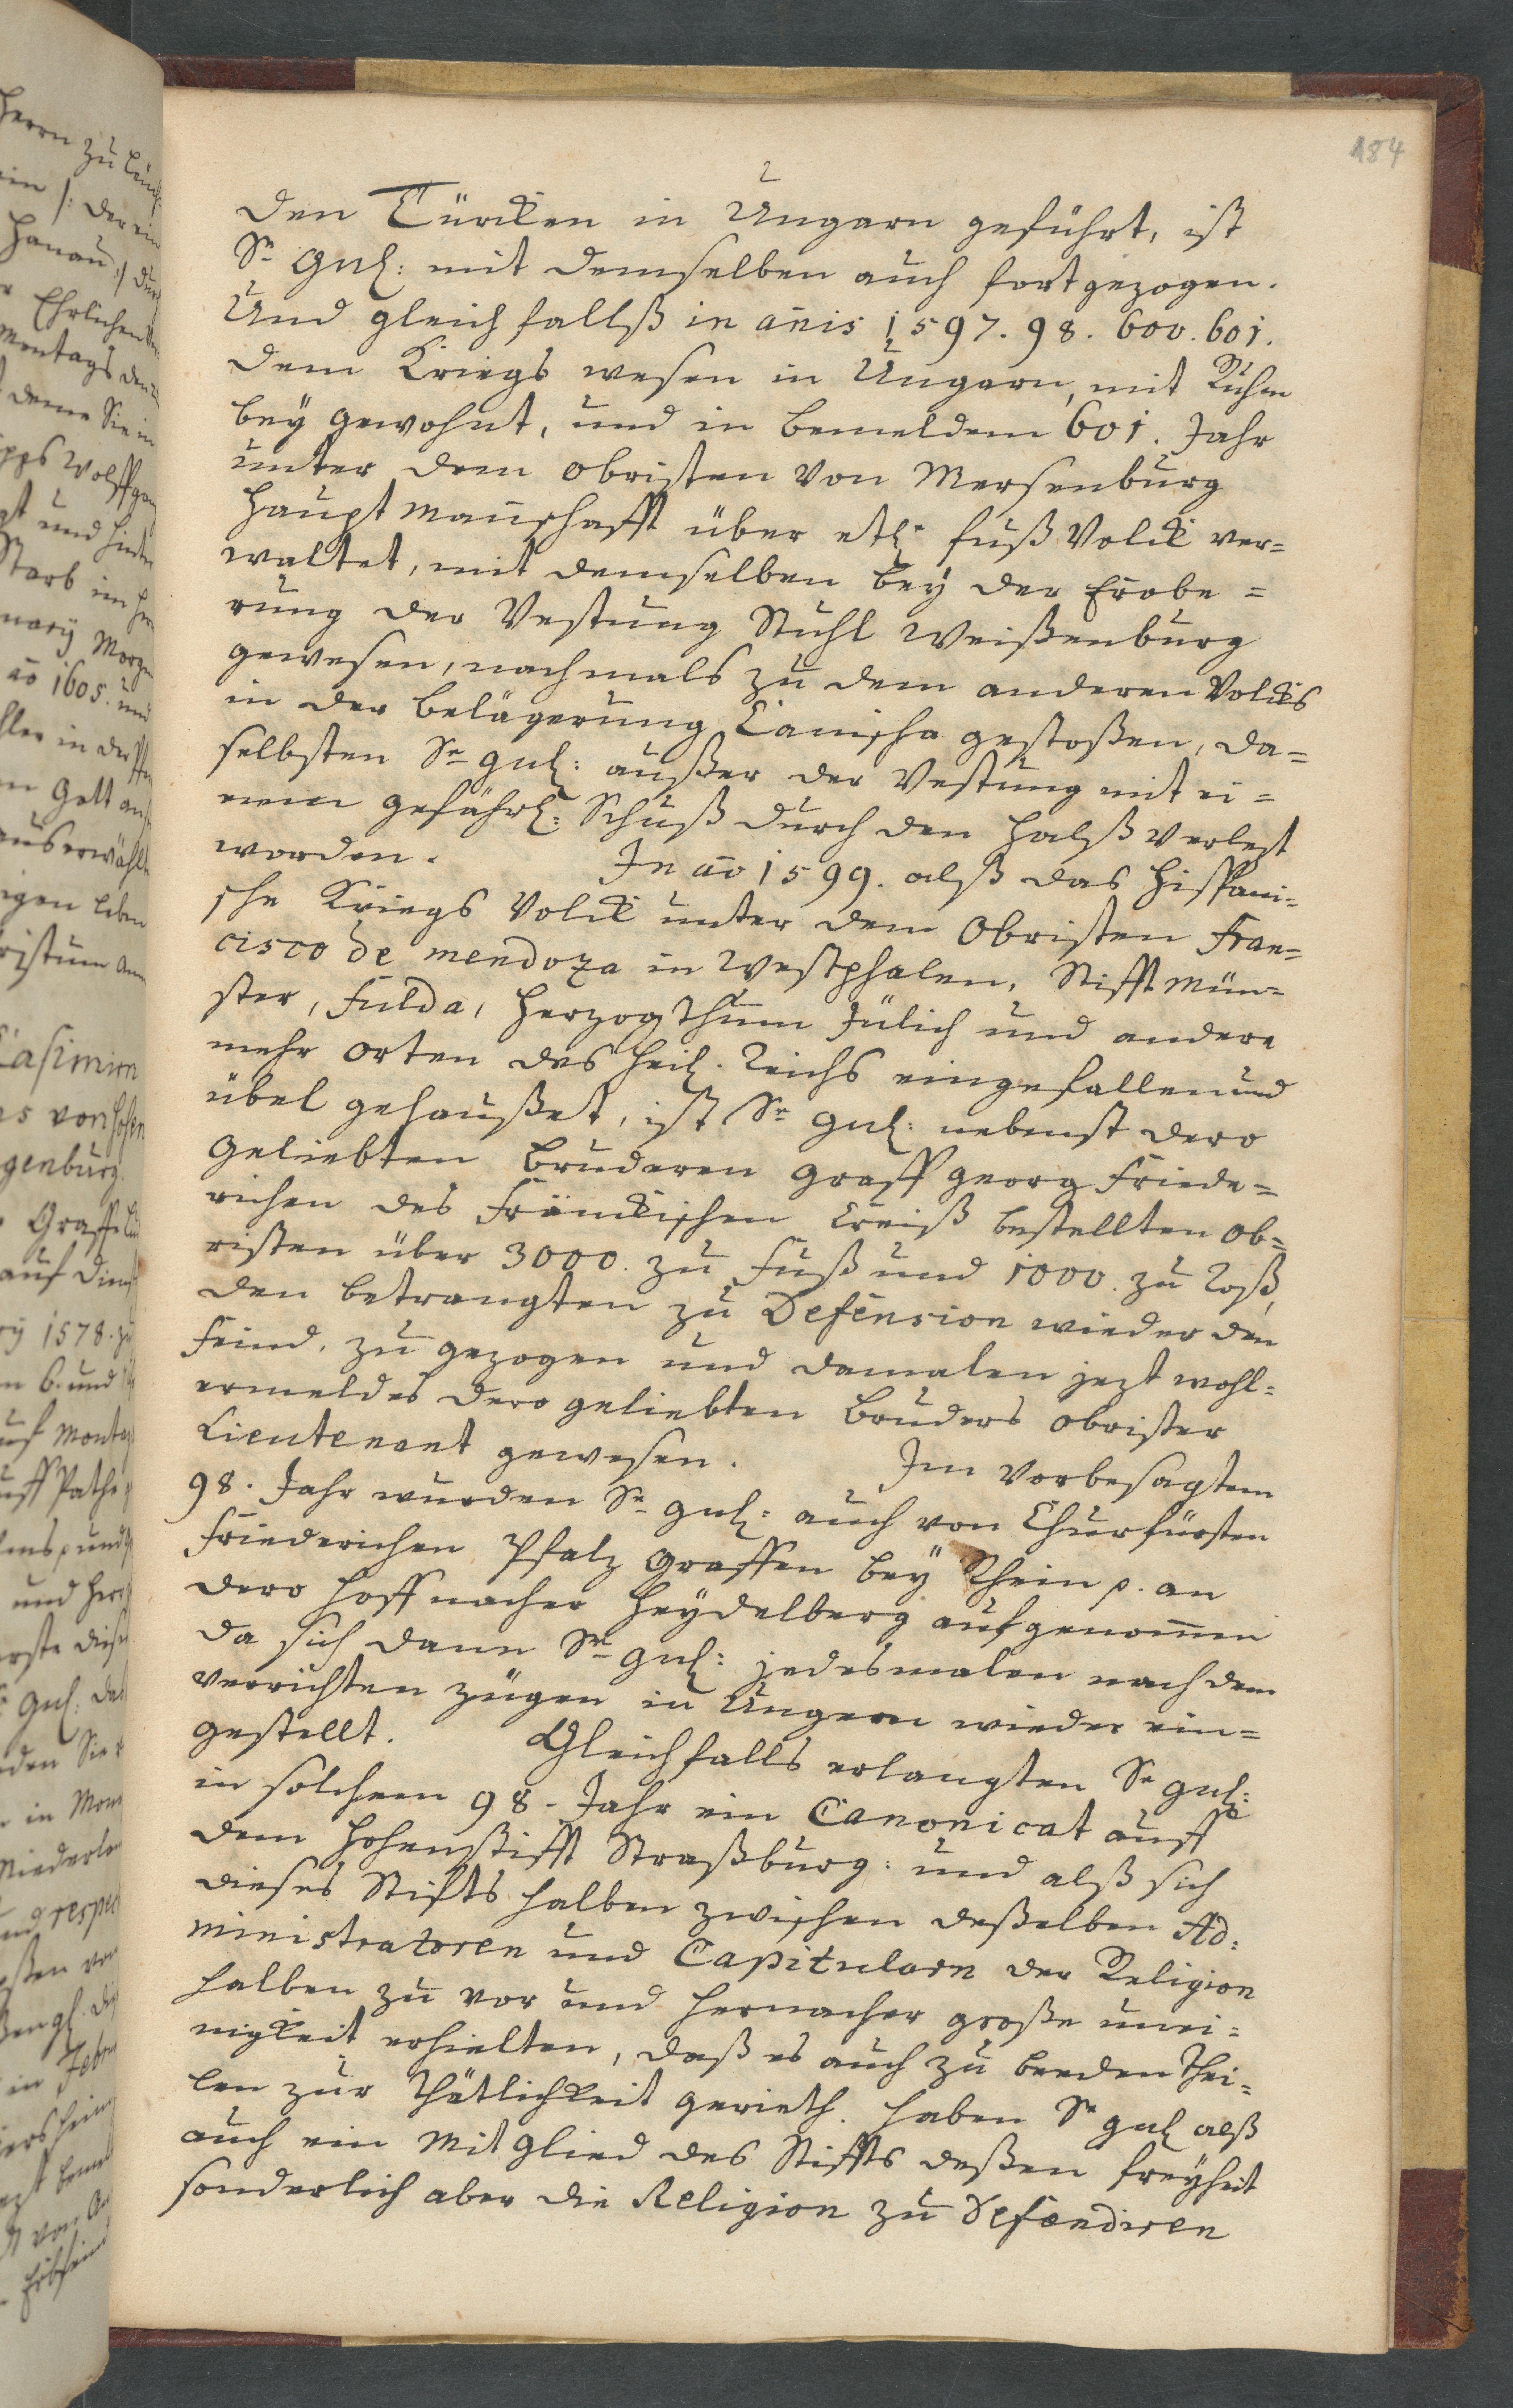 184
den Türcken in Ungarn geführt, ist
Sr Gnl: mit demselben auch fortgezogen.
Und gleichfallß in añis 1597. 98. 600. 601.
dem Kriegs wesen in Ungarn, mit Ruhm
beÿ gewohnt, und in bemeldem 601. Jahr
unter dem obristen von Mersenburg
Hauptmanschafft über etl: fuß Volck ver=
waltet, mit demselben beÿ der Erobe=
rung der Vestung Stuhl Weißenburg
gewesen, nachmals zu dem anderen Volcks
in der belägerung Canischa gestoßen, da=
selbsten Sr gnl: außer der Vestung mit ei=
nem gefährl: Schuß durch den Halß verlezt
worden. In ão 1599. alß das Hispani=
sche Kriegs Volck unter dem Obristen Fran=
cisco de mendoza in Westphalen, Stifft Mün=
ster, Fulda, Herzogthum Jülich und andere
mehr Orten des Heil. Reichs eingefallen und
übel gehaußet, ist Sr gnl: nebenst dero
geliebten Bruderen Graff Georg Friede=
richen des Fränckischen Creiß bestellten Ob=
risten über 3000. zu Fuß und 1000. zu Roß,
den betrangten zu Defension wieder den
Feind, zu gezogen und damalen jezt wohl=
ermeldes dero geliebten Bruders obrister
Lieutenant gewesen. Im Vorbesagtem
98. Jahr wurden Sr gnl: auch von Churfürsten
Friederichen Pfalz Graffen beÿ Rhein p. an
dero Hoff nacher Heÿdelberg aufgenom̃en
da sich dann Sr gnl: jedesmalen nach dem
verrichten zügen in Ungern wieder ein=
gestellt. Gleichfalls erlangten Sr gnl:
in solchem 98. Jahr ein Canonicat auff
dem Hohenstifft Straßburg: und alß sich
dieses Stiffts halben zwischen deßelben Ad=
ministratoren und Capitularn der Religion
halben zu vor und hernacher große unei=
nigkeit erhielten, daß es auch zu beeden Thei=
len zur thätlichkeit gerieth. haben Sr gnl alß
auch ein Mitglied des Stiffts deßen freÿheit
sonderlich aber die Religion zu Defendiren